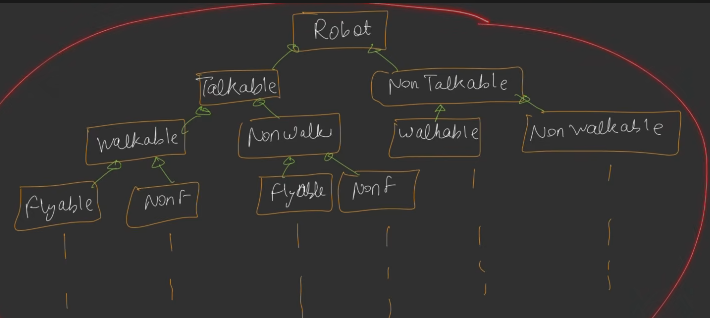 Robot
Talkable
Non Talkable
Walkable
Non walk
Walkable
Non Walkable
Flyable
Non F
Flyable
Non F